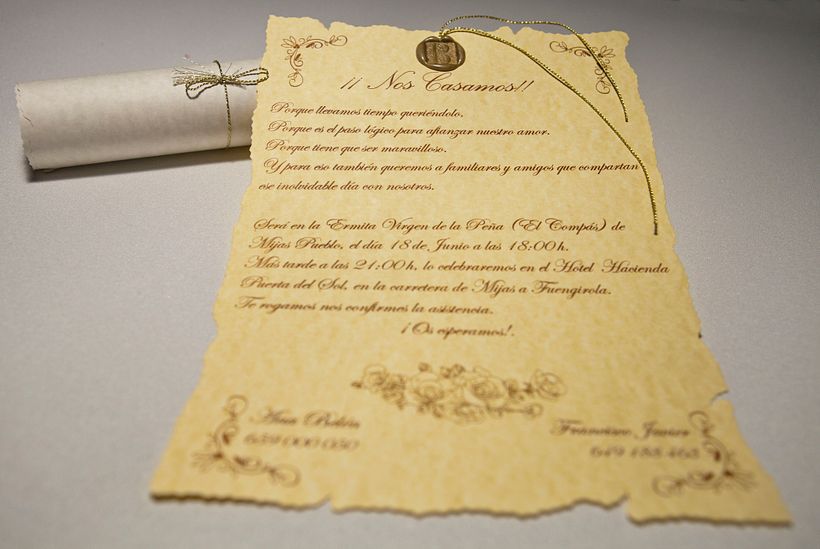 ¡¡ Nos Casamos!!
Porque llevamos tiempo queriéndolo.
Porque es el paso lógico para afianzar nuestro amor.
Porque tiene que ser maravilloso.
Y para eso también queremos a familiares y amigos que compartan
ese inolvidable día con nosotros.
Será en la Ermita Virgen de la Peña (El Compás) de
Mijas Pueblo, el día 18 de Junio a las 18:00h.
Más tarde a las 21:00h, lo celebraremos en el Hotel Hacienda
Puerta del Sol, en la carretera de Mijas a Fuengirola.
Te rogamos nos confirmes la asistencia.
¡Os esperamos!.
Ana Belén
Francisco Javier